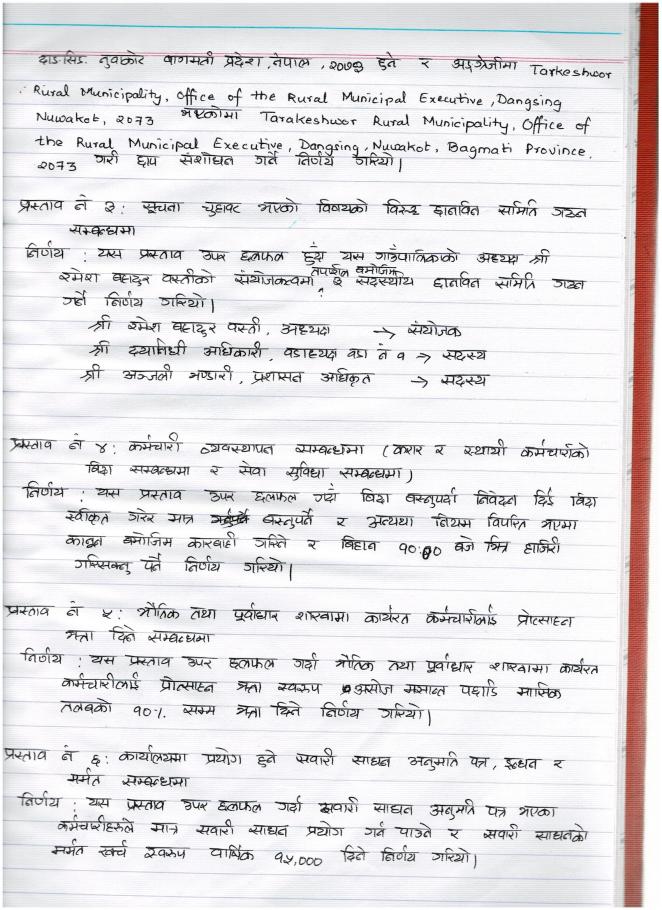 दाङसिङ नुवाकोट बागमती प्रदेश, नेपाल, २०७३ हुने र अङ्ग्रेजीमा Tarkeshwor
Rural Municipality, Office of the Rural Municipal Executive, Dangsing
Nuwakot, 2073 भएकोमा Tarakeshwor Rural Municipality, Office of
the Rural Municipal Executive, Dangsing, Nuwakot, Bagmati Province,
2073 गरी छाप संशोधन गर्ने निर्णय गरियो।
प्रस्ताव नं ३: सूचना चुहावट भएको विषयको विरुद्ध छानविन समिति गठन
सम्बन्धमा
निर्णय : यस प्रस्ताव उपर छलफल हुँदा यस गाउँपालिकाको अध्यक्ष श्री
रमेश बहादुर वस्तीको संयोजकत्वमा तपशिल बमोजिम ३ सदस्यीय छानविन समिति गठन
गर्ने निर्णय गरियो।
श्री रमेश बहादुर वस्ती, अध्यक्ष → संयोजक
श्री दयानिधी अधिकारी, वडाध्यक्ष वडा नं १ → सदस्य
श्री अञ्जली भण्डारी, प्रशासन अधिकृत → सदस्य
प्रस्ताव नं ४: कर्मचारी व्यवस्थापन सम्बन्धमा (करार र स्थायी कर्मचारीको
बिदा सम्बन्धमा र सेवा सुविधा सम्बन्धमा)
निर्णय : यस प्रस्ताव उपर छलफल गर्दा बिदा बस्नुपर्दा निवेदन दिई बिदा
स्वीकृत गरेर मात्र बस्नुपर्ने र अन्यथा नियम विपरित भएमा
कानून बमोजिम कारवाही गरिने र बिहान १०:०० बजे भित्र हाजिरी
गरिसक्नु पर्ने निर्णय गरियो।
प्रस्ताव नं ५: भौतिक तथा पूर्वाधार शाखामा कार्यरत कर्मचारीलाई प्रोत्साहन
भत्ता दिने सम्बन्धमा
निर्णय : यस प्रस्ताव उपर छलफल गर्दा भौतिक तथा पूर्वाधार शाखामा कार्यरत
कर्मचारीलाई प्रोत्साहन भत्ता स्वरूप असोज मसान्त पछाडि मासिक
तलबको १०% सम्म भत्ता दिने निर्णय गरियो।
प्रस्ताव नं ६: कार्यालयमा प्रयोग हुने सवारी साधन अनुमति पत्र, इन्धन र
मर्मत सम्बन्धमा
निर्णय : यस प्रस्ताव उपर छलफल गर्दा सवारी साधन अनुमति पत्र भएका
कर्मचारीहरूले मात्र सवारी साधन प्रयोग गर्न पाउने र सवारी साधनको
मर्मत खर्च स्वरूप वार्षिक १५,००० दिने निर्णय गरियो।